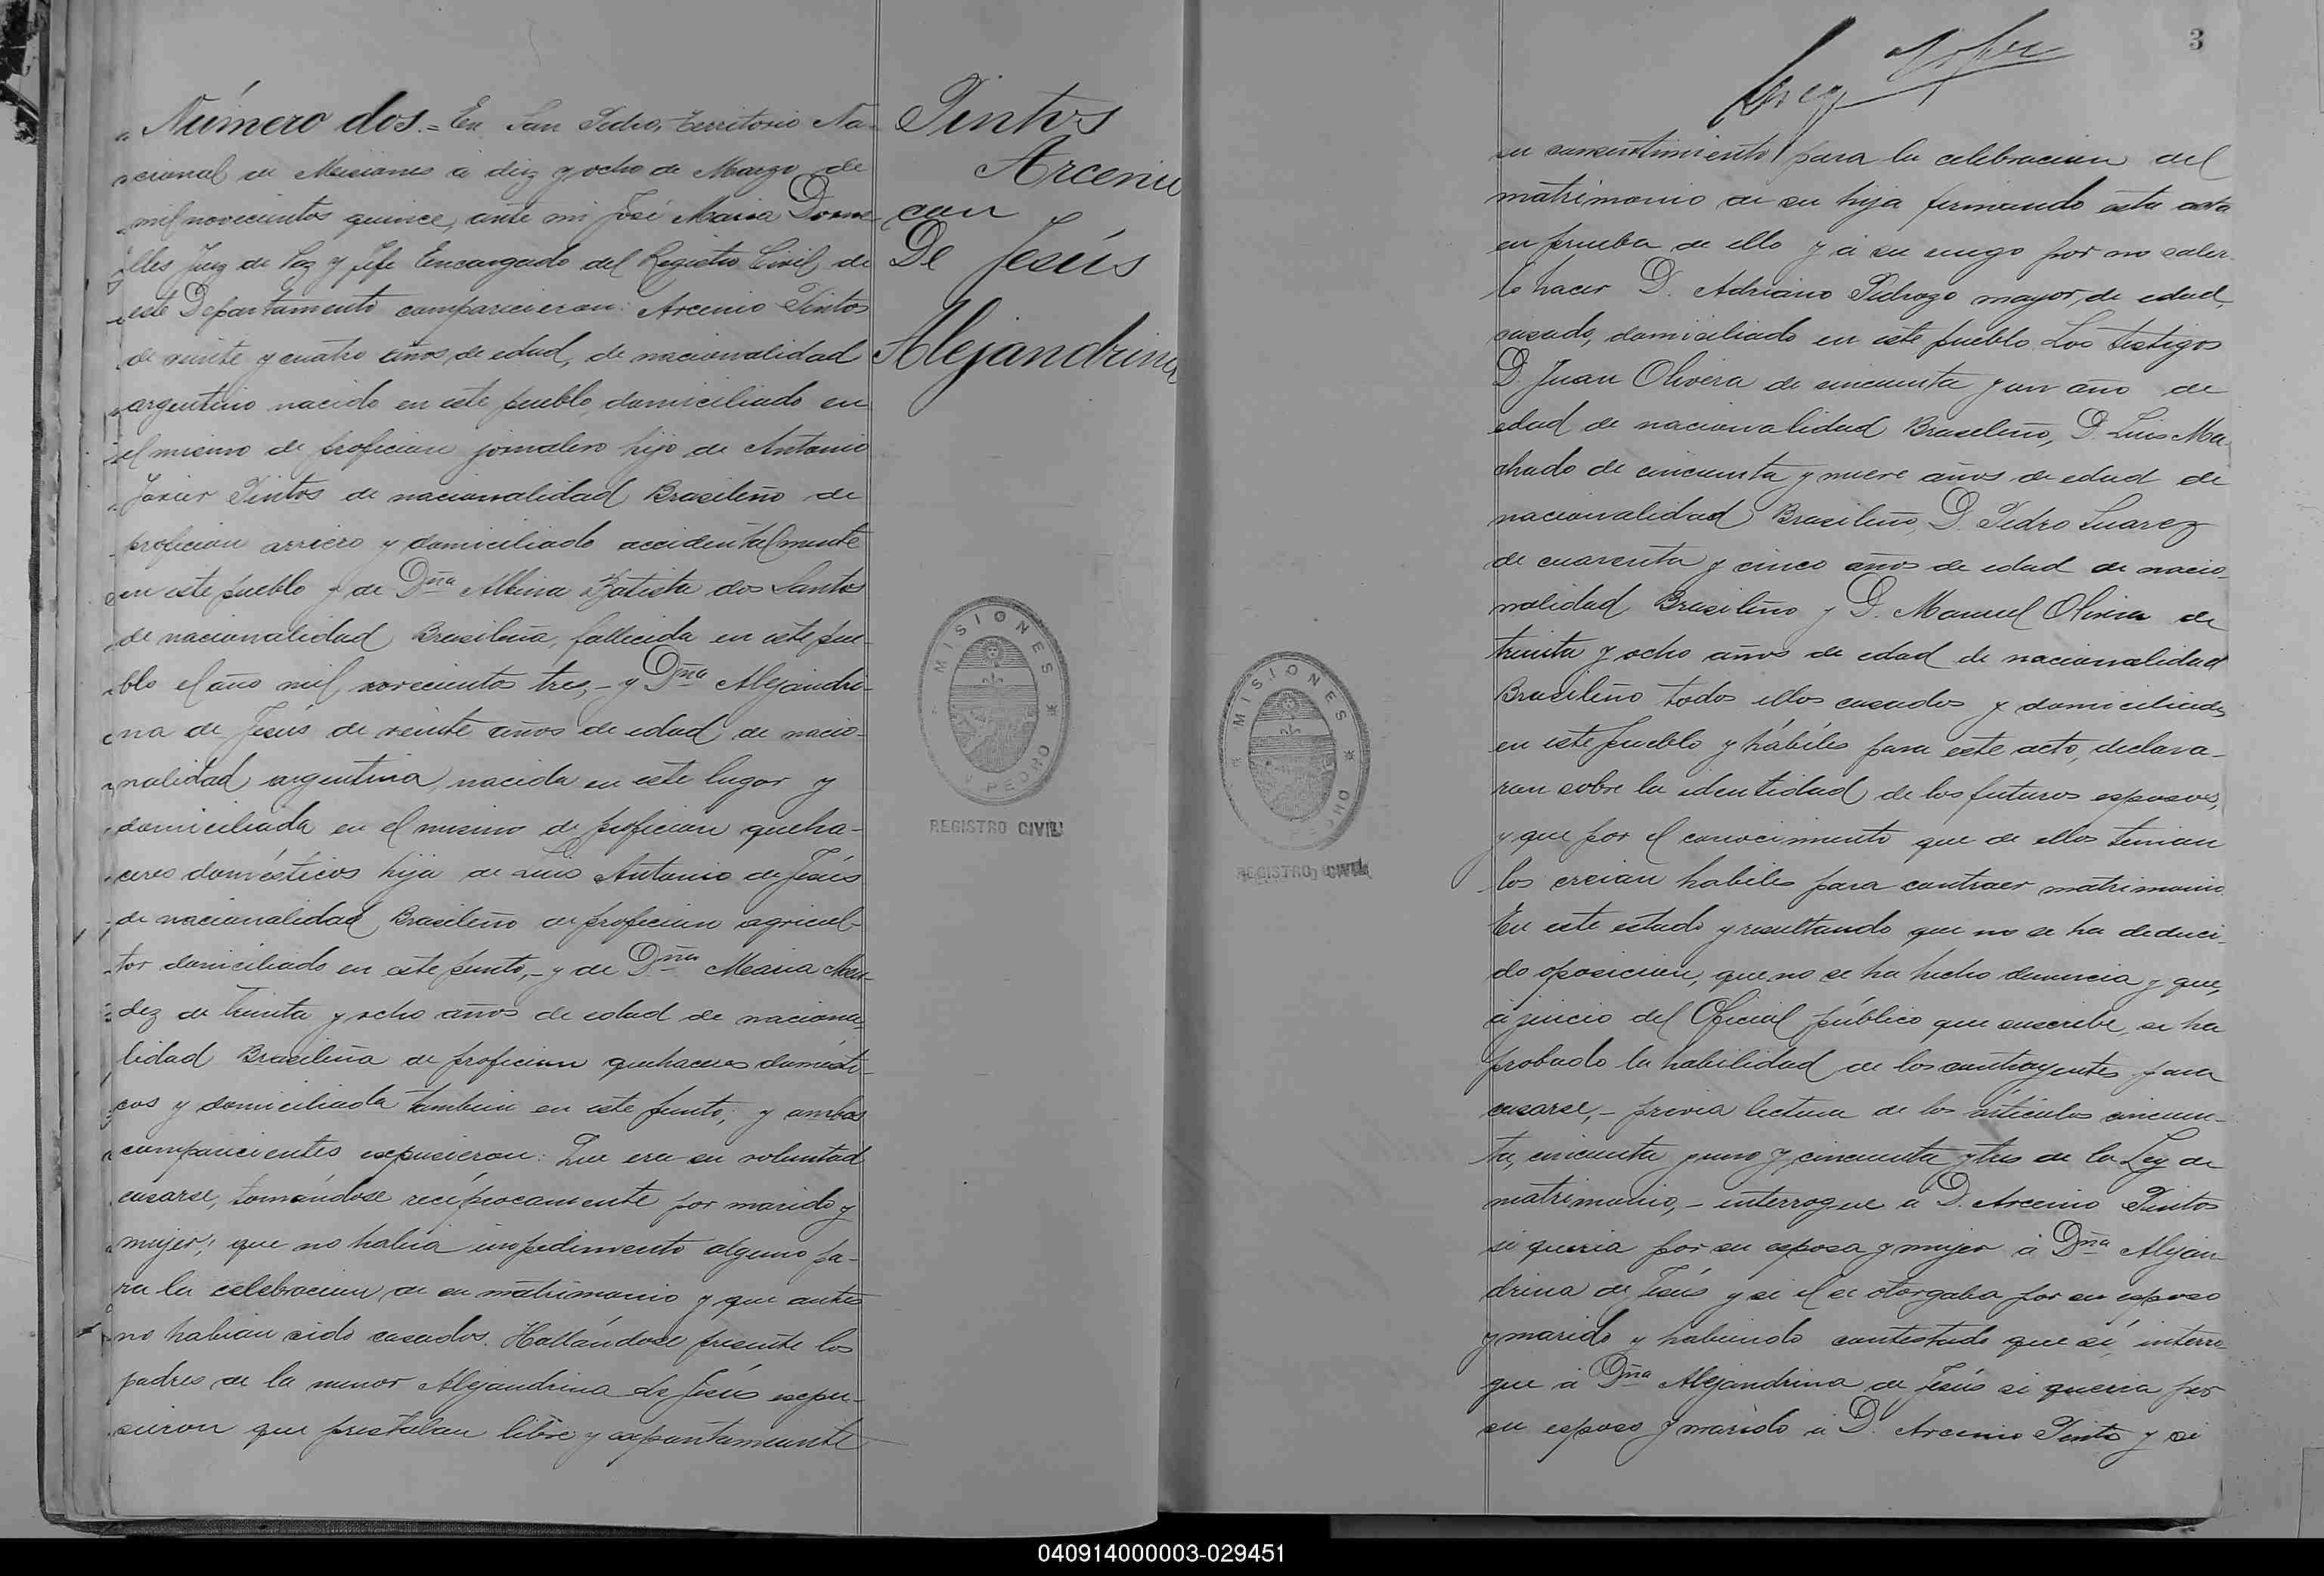 Número dos.= En San Pedro, territorio Na-
cional de Misiones á diez y ocho de Marzo de
mil novecientos quince, ante mi José Maria Dorne-
lles Juez de Paz y Jefe Encargado del Registro Civil de
este Departamento comparecieron: Arcenio Pintos
de veinte y cuatro años de edad, de nacionalidad
argentino nacido en este pueblo, domiciliado en
el mismo de profecion jornalero hijo de Antonio
Javier Pintos de nacionalidad Brasileño de
profecion arriero y domiciliado accidentalmente
en este pueblo y de Dña Albina Batista dos Santos
de nacionalidad Brasileña, fallecida en este pue-
blo el año mil novecientos tres,- y Dña Alejandri-
na de Jesús de veinte años de edad de nacio-
nalidad argentina, nacida en este lugar y
domiciliada en el mismo de profecion queha-
ceres domésticos hija de Luis Antonio de Jesús
de nacionalidad Brasileño de profecion agricul-
tor domiciliado en este punto,- y de Dña Maria Men-
dez de treinta y ocho años de edad de naciona-
lidad Brasileña de profecion quehaceres domésti-
cos y domiciliada tambien en este punto; y ambos
comparecientes expusieron: Que era su voluntad
casarse, tomándose recíprocamente por marido y
mujer; que no habia impedimento alguno pa-
ra la celebracion de su matrimonio y que antes
no habian sido casados. Hallándose presente los
padres de la menor Alejandrina de Jesús expu-
sieron que prestaban libre y espontamiante
Pintos
Arcenio
con
De Jesús
Alejandrina
MISIONES
REGISTRO CIVIL
3
su consentimiento para la celebracion del
matrimonio de su hija firmando esta acta
en prueba de ello y á su ruego por no saber
lo hacer D. Adriano Pedrozo mayor, de edad,
casado, domiciliado en este pueblo. Los testigos
D. Juan Olivera de cincuenta y un año de
edad de nacionalidad Brasileño, D. Luis Ma-
chado de cincuenta y nueve años de edad de
nacionalidad Brasileño, D. Pedro Suarez
de cuarenta y cinco años de edad de nacio-
nalidad Brasileño y D. Manuel Olivera de
treinta y ocho años de edad de nacionalidad
Brasileño todos ellos casados y domiciliados
en este pueblo y hábiles para este acto, declara-
ron sobre la identidad de los futuros esposos,
y que por el conocimiento que de ellos tenian
los creian habiles para contraer matrimonio.
En este estado y resultando que no se ha deduci-
do oposicion, que no se ha hecho denuncia y que,
á juicio del Oficial público que suscribe, se ha
probado la habilidad de los contrayentes para
casarse,- previa lectura de los artículos cincuen-
ta, cincuenta y uno y cincuenta y tres de la Ley de
matrimonio,- interrogue á D. Arcenio Pintos
si queria por su esposa y mujer á Dña Alejan-
drina de Jesús y si el se otorgaba por su esposo
y marido y habiendo contestado que si, interro-
gue á Dña Alejandrina de Jesús si queria por
su esposo y marido á D. Arcenio Pintos y si
MISIONES
REGISTRO CIVIL
040914000003-029451